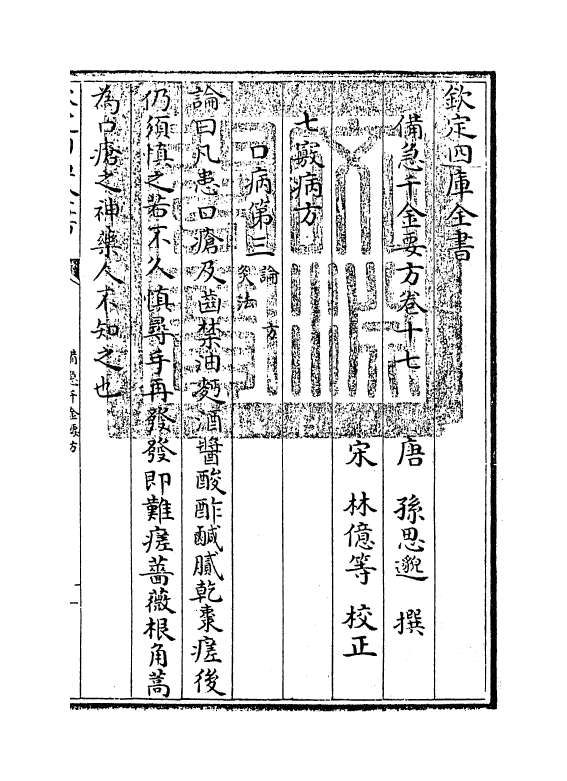 欽定四庫全書
備急千金要方卷十七
唐 孫思邈 撰
宋 林億等 校正
七竅病方
口病第三 論 方 灸法
論曰凡患口瘡及齒禁油麪酒醬酸酢鹹膩乾棗瘥後
仍須慎之若不久慎尋手再發發即難瘥薔薇根角蒿
為口瘡之神藥人不知之也
備急千金要方
一